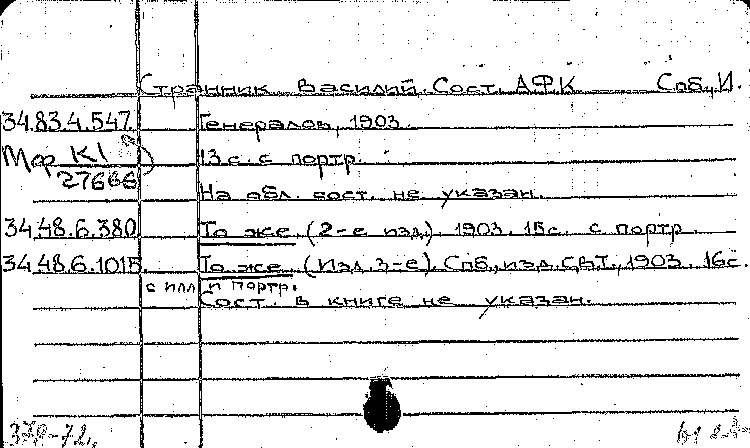 Странник Василий. Сост. А.Ф.К Спб., И.
34.83.4.547. Генералов, 1903.
Мф К1 13 с. с портр.
27666
На обл. сост. не указан.
34.48.6.380 То же. (2-е изд.). 1903. 15с. с портр.
34.48.6.1015. То же. (Изд. 3-е). Спб., изд. СВТ., 1903. 16с.
с илл и портр.
Сост. в книге не указан.
378-72.